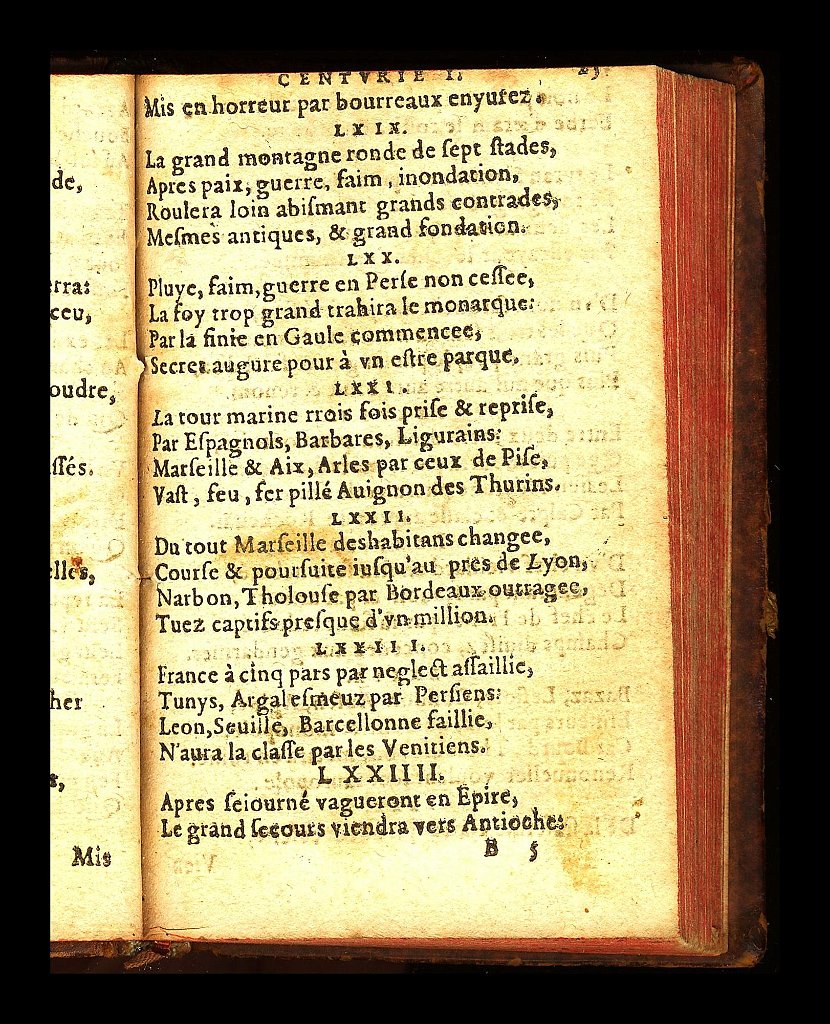 de,
rra:
ceu,
oudre,
ſſés.
elles,
her
s,
Mis
CENTVRIE I.
Mis en horreur par bourreaux enyurez.
LXIX.
La grand montagne ronde de ſept ſtades,
Apres paix, guerre, faim, inondation,
Roulera loin abiſmant grands contrades,
Meſmes antiques, & grand fondation.
LXX.
Pluye, faim, guerre en Perſe non ceſſee,
La foy trop grand trahira le monarque:
Par la finie en Gaule commencee,
Secret augure pour à vn eſtre parque.
LXXI.
La tour marine rrois fois priſe & repriſe,
Par Eſpagnols, Barbares, Ligurains:
Marſeille & Aix, Arles par ceux de Piſe,
Vaſt, feu, fer pillé Auignon des Thurins.
LXXII.
Du tout Marſeille deshabitans changee,
Courſe & pourſuite iuſqu'au pres de Lyon,
Narbon, Tholouſe par Bordeaux outragee,
Tuez captifs preſque d'vn million.
LXXIII.
France à cinq pars par neglect aſſaillie,
Tunys, Argal eſmeuz par Perſiens:
Leon, Seuille, Barcellonne faillie,
N'aura la claſſe par les Venitiens.
LXXIIII.
Apres ſeiourné vagueront en Epire,
Le grand ſecours viendra vers Antioche:
B 5